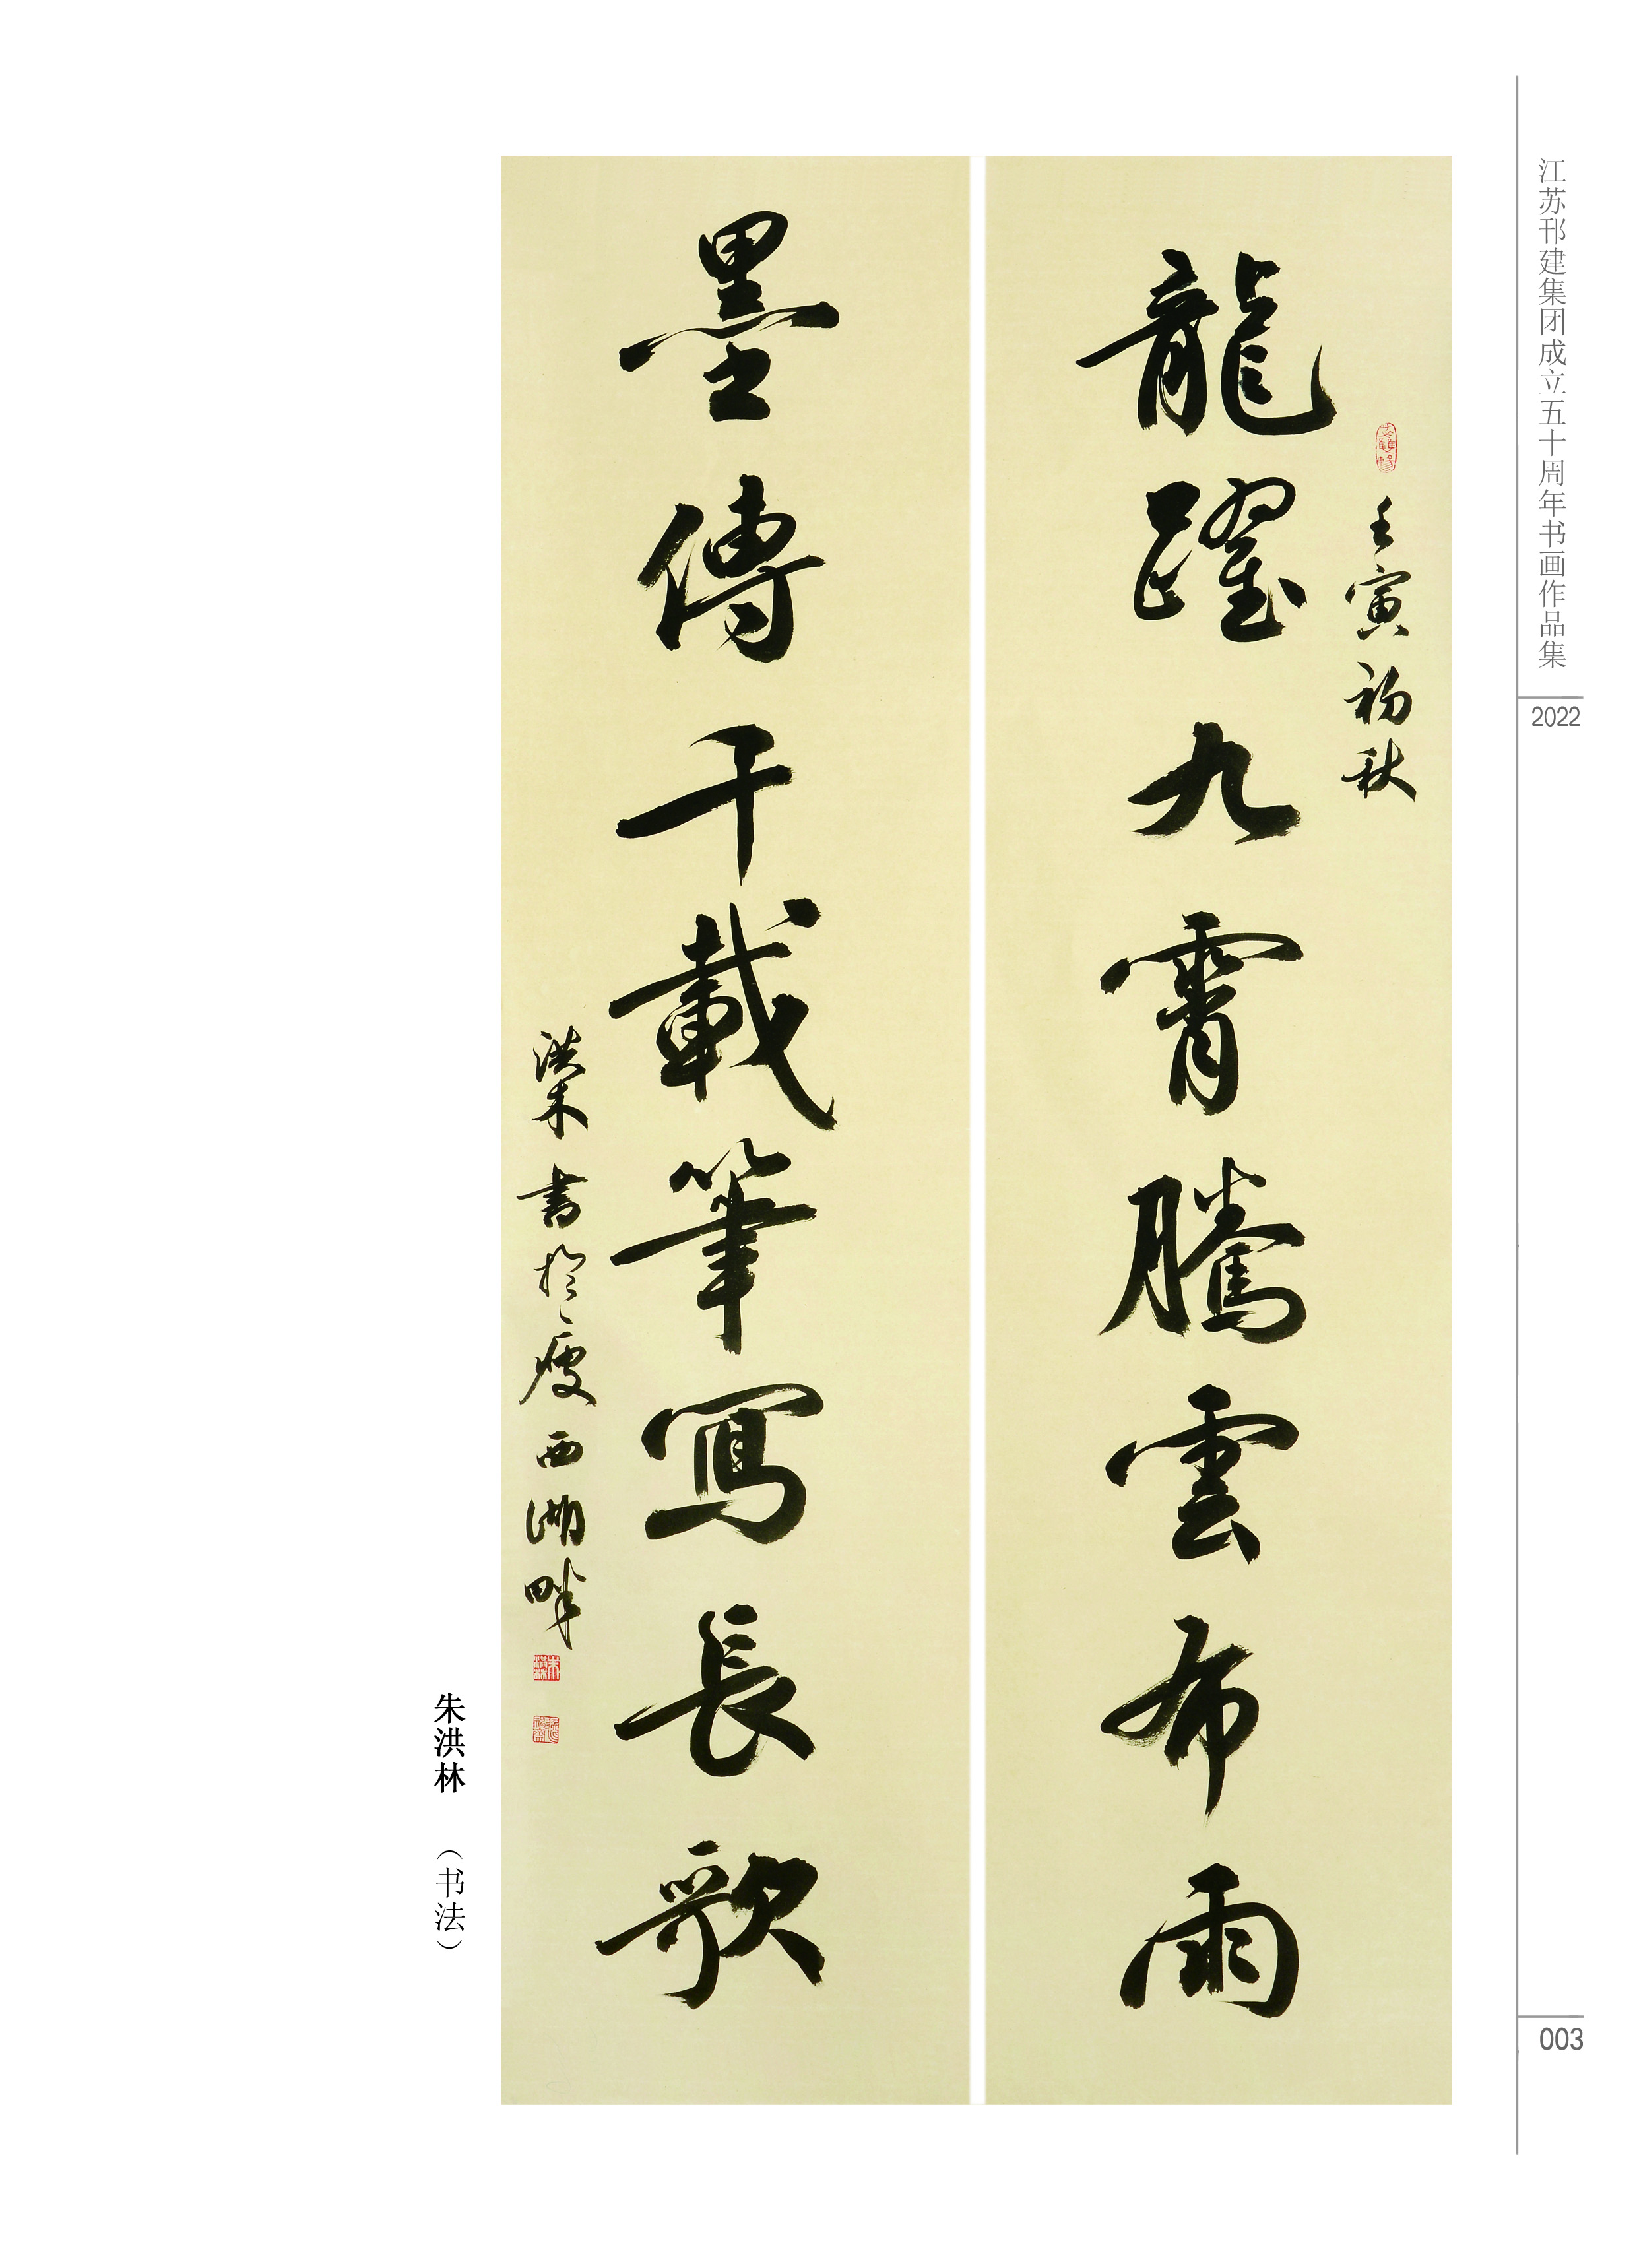 江苏邗建集团成立五十周年书画作品集
2022
壬寅初秋
龍躍九霄騰雲布雨
墨傳千載筆寫長歌
洪林書於瘦西湖畔
朱洪林
朱洪林 （书法）
003